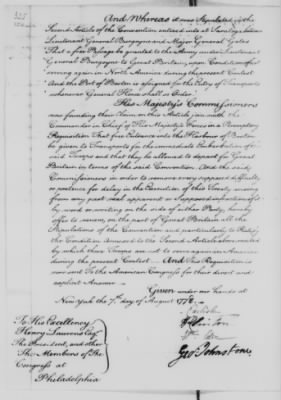 And Whereas it was Stipulated in the
Second Article of the Convention entered into at Saratoga between
Lieutenant General Burgoyne and Major General Gates
That a free Passage be granted to the Army under Lieutenant
General Burgoyne to Great Britain, upon Condition of not
serving again in North America during the present Contest
And the Port of Boston is assigned for the Entry of Transports
whenever General Howe shall so Order.
His Majesty's Commissioners
now founding their Claim on this Article join with the
Commander in Chief of His Majesty's Forces in a Peremptory
Requisition That free Entrance into the Harbour of Boston
be given to Transports for the immediate Embarkation of the
said Troops and that they be allowed to depart for Great
Britain in terms of the said Convention And the said
Commissioners in order to remove every supposed difficulty
or pretence for delay in the Execution of this Treaty arising
from any past real apparent or Supposed infraction of it
by word or writing on the side of either Party, hereby
offer to renew, on the part of Great Britain all the
Stipulations of the Convention and particularly to Ratify
the Condition Annexed to the Second Article above recited
by which those Troops are not to serve again in America
during the present Contest And This Requisition is
now sent To the American Congress for their direct and
explicit Answer
Given under our hands at
New York the 7th day of August 1778
Carlisle
H Clinton
Wm Eden
Geo: Johnstone
To His Excellency
Henry Laurens Esqr
The President, and other
The Members of The
Congress at
Philadelphia